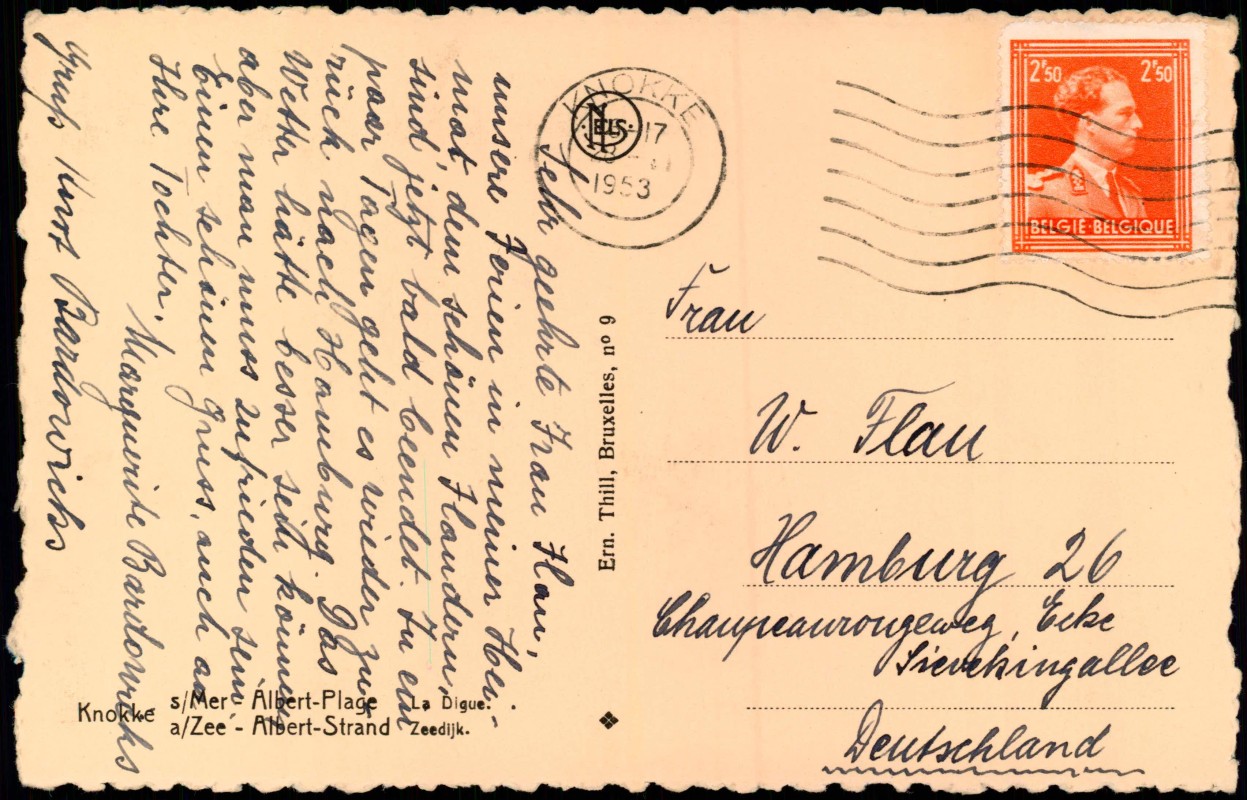 Sehr geehrte Frau Flau,
unsere Ferien in meiner Hei-
mat, dem schönen Flandern,
sind jetzt bald beendet. In ein
paar Tagen geht es wieder zu-
rück nach Hamburg. Das
Wetter hätte besser sein können
aber man muss zufrieden sein
Einen schönen Gruss, auch an
Ihre Tochter.
Marguerite Bardowicks
Gruß Horst Bardowicks
Knokke s/Mer - Albert-Plage La Digue.
a/Zee - Albert-Strand Zeedijk.
Ern. Thill, Bruxelles, nº 9
NELS
KNOKKE
17
1953
2F50 2F50
BELGIE·BELGIQUE
Frau
W. Flau
Hamburg 26
Chaupeaurougeweg, Ecke
Sievekingallee
Deutschland